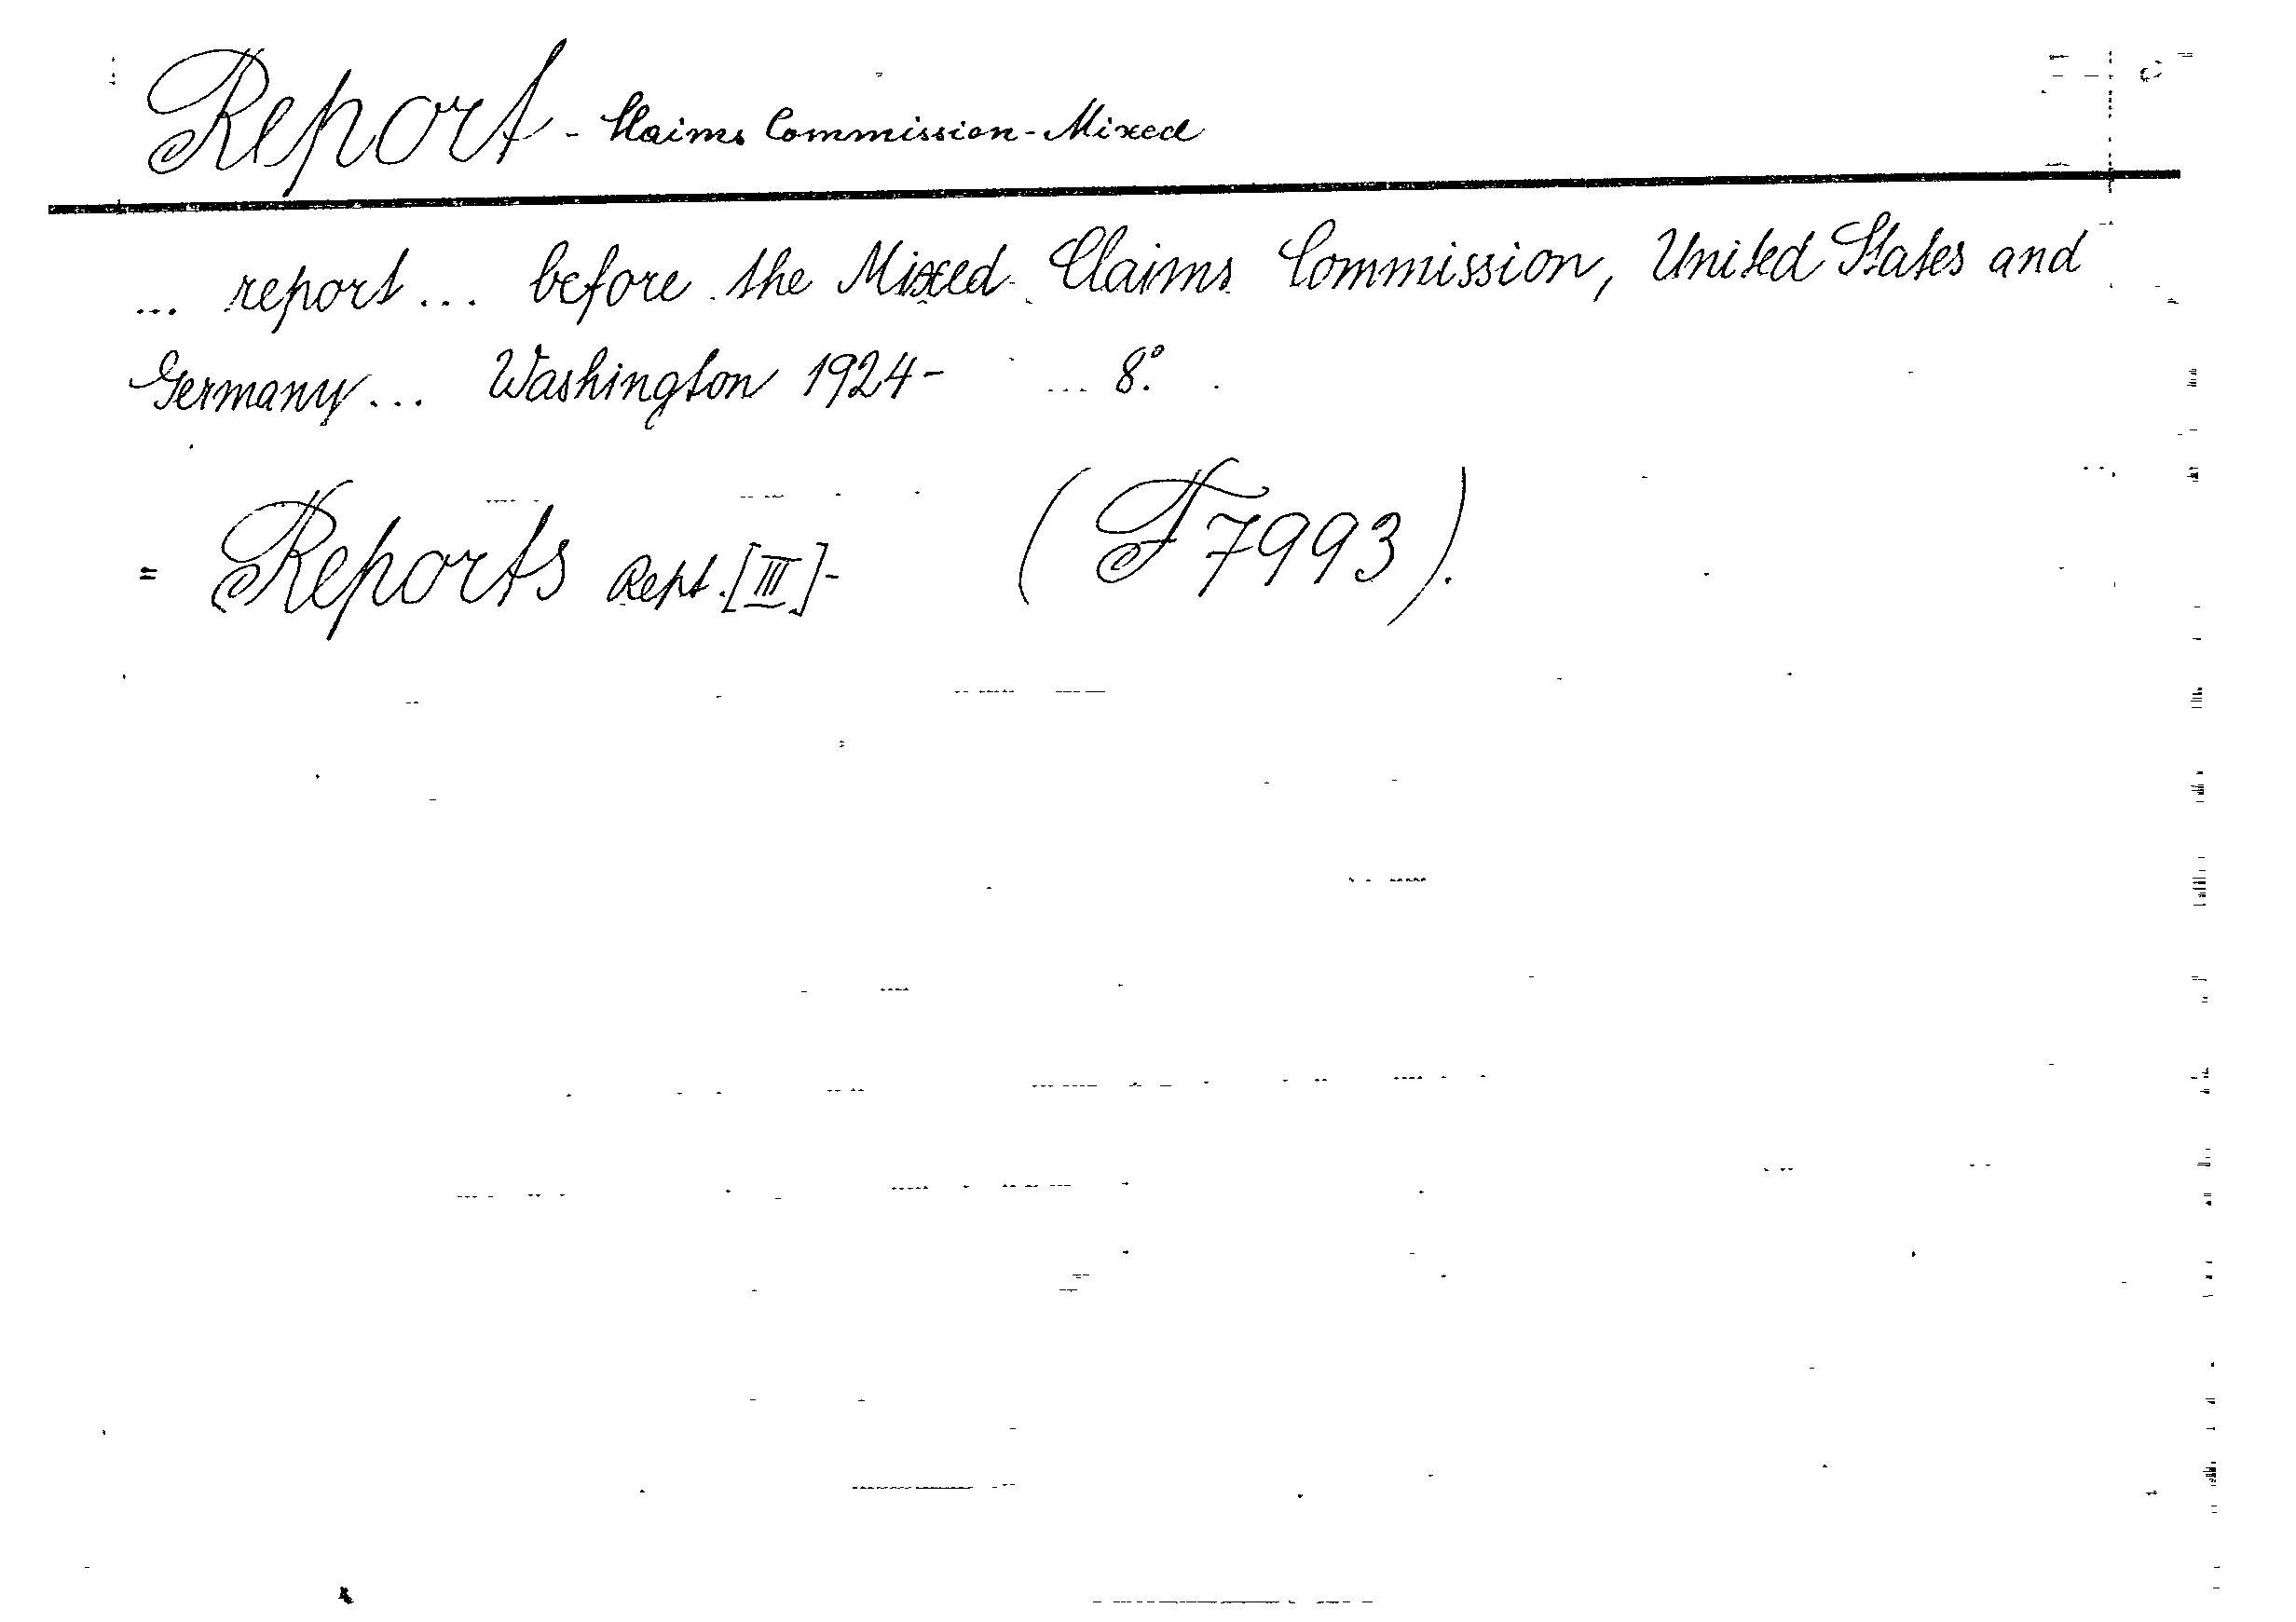 Report - Claims Commission - Mixed
... report ... before the Mixed Claims Commission, United States and
Germany ... Washington 1924- ... 8°.
= Reports Rept. [III]- (F 7993).